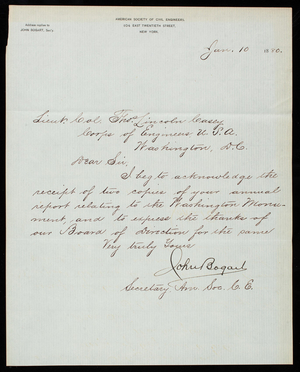 AMERICAN SOCIETY OF CIVIL ENGINEERS
104 EAST TWENTIETH STREET,
NEW YORK.
JOHN BOGART, Sec'y.
Jan. 10 1880.
Lieut. Col. Thos Lincoln Casey
Corps of Engineers U.S.A.
Washington, D.C.
Dear Sir,
I beg to acknowledge the
receipt of two copies of your annual
report relating to the Washington Monu-
ment, and to express the thanks of
our Board of Direction for the same
Very truly Yours
John Bogart
Secretary Am. Soc. C.E.